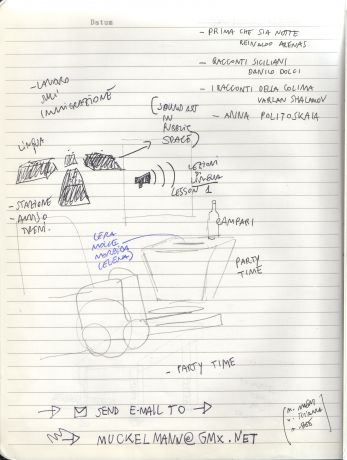 Datum
- PRIMA CHE SIA NOTTE
REINALDO ARENAS
- RACCONTI SICILIANI
DANILO DOLCI
- I RACCONTI DELLA COLIMA
VARLAM SHALAMOV
- ANNA POLITOSKAIA
- LAVORO
SULL'
IMMIGRAZIONE
(SOUND ART
IN
PUBLIC
SPACE)
LINGUA
LEZIONI
DI
LINGUA
LESSON 1
- STAZIONE
- AVVISO
TRENI.
CAMPARI
CERA
MOLLE
MORBIDA
(ELENA)
PARTY
TIME
- PARTY TIME
SEND E-MAIL TO
MUCKELMANN@GMX.NET